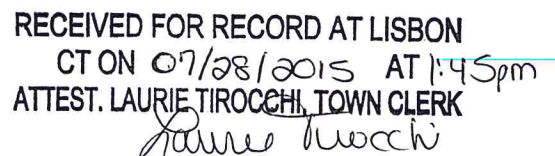 RECEIVED FOR RECORD AT LISBON
CT ON 07/28/2015 AT 1:45pm
ATTEST. LAURIE TIROCCHI, TOWN CLERK
Laurie Tirocchi